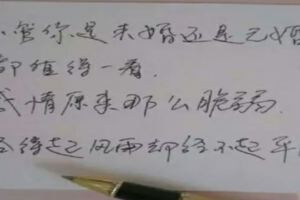 不管你是未婚还是已婚
都值得一看.
感情原来那么脆弱.
经得起风雨却经不起平